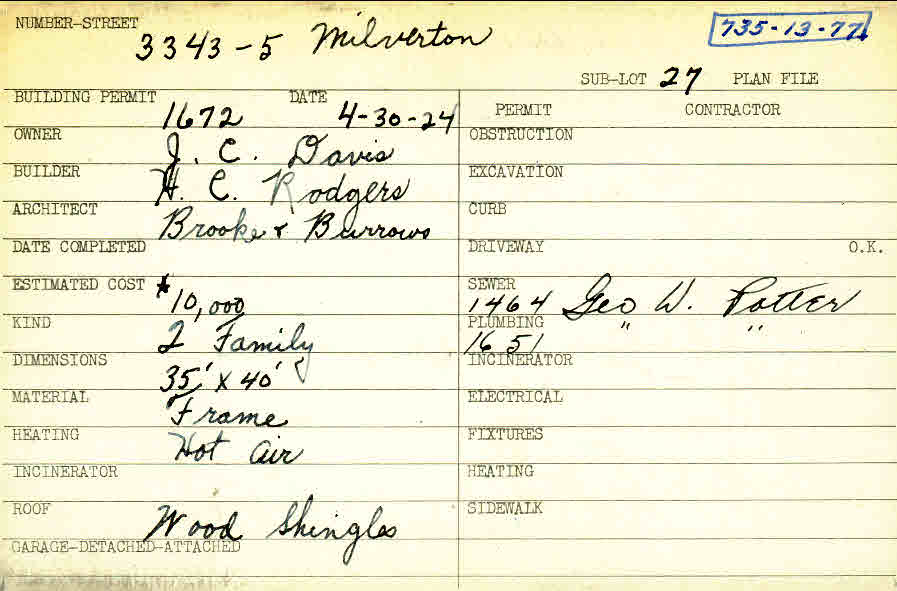 NUMBER-STREET 3343-5 Milverton 735-13-77
SUB-LOT 27 PLAN FILE
BUILDING PERMIT 1672 DATE 4-30-24
PERMIT CONTRACTOR
OWNER J. C. Davis
OBSTRUCTION
BUILDER H. C. Rodgers
EXCAVATION
ARCHITECT Brooke & Burrows
CURB
DATE COMPLETED
DRIVEWAY O.K.
ESTIMATED COST $10,000
SEWER 1464 Geo W. Potter
KIND 2 Family
PLUMBING 1651 " "
DIMENSIONS 35' x 40'
INCINERATOR
MATERIAL Frame
ELECTRICAL
HEATING Hot air
FIXTURES
INCINERATOR
HEATING
ROOF Wood Shingles
SIDEWALK
GARAGE-DETACHED-ATTACHED